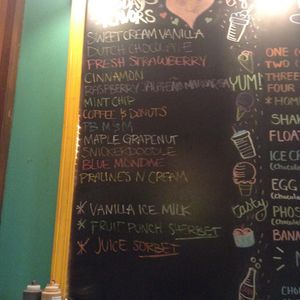 FLAVORS
SWEET CREAM VANILLA
DUTCH CHOCOLATE
FRESH STRAWBERRY
CINNAMON
RASPBERRY JALAPEÑO MARGARITA
MINT CHIP
COFFEE & DONUTS
PB M&M
MAPLE GRAPENUT
SNICKERDOODLE
BLUE MONDAE
PRALINES N CREAM
* VANILLA ICE MILK
* FRUIT PUNCH SHERBET
* JUICE SORBET
YUM!
tasty
ONE
TWO
THREE
FOUR
SHA
FLOA
ICE C
(choco
EGG
(chocola
PHOS
(choc
BANA